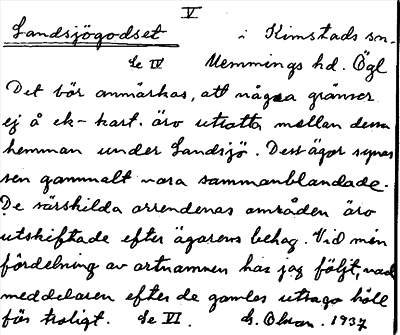 V
Landsjögodset i Kimstads sn.
Se IV Memmings hd. Ögl
Det bör anmärkas, att några gränser
ej å ek-kart. äro utsatta mellan dessa
hemman under Landsjö. Dess ägor synas
sen gammalt vara sammanblandade.
De särskilda arrendenas områden äro
utskiftade efter ägarens behag. Vid min
fördelning av ortnamnen har jag följt, vad
meddelaren efter de gamles utsago höll
för troligt. Se VI. G. Olson. 1937